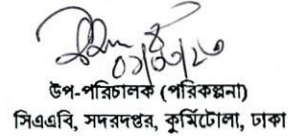 উপ-পরিচালক (পরিকল্পনা)
সিএএবি, সদরদপ্তর, কুর্মিটোলা, ঢাকা